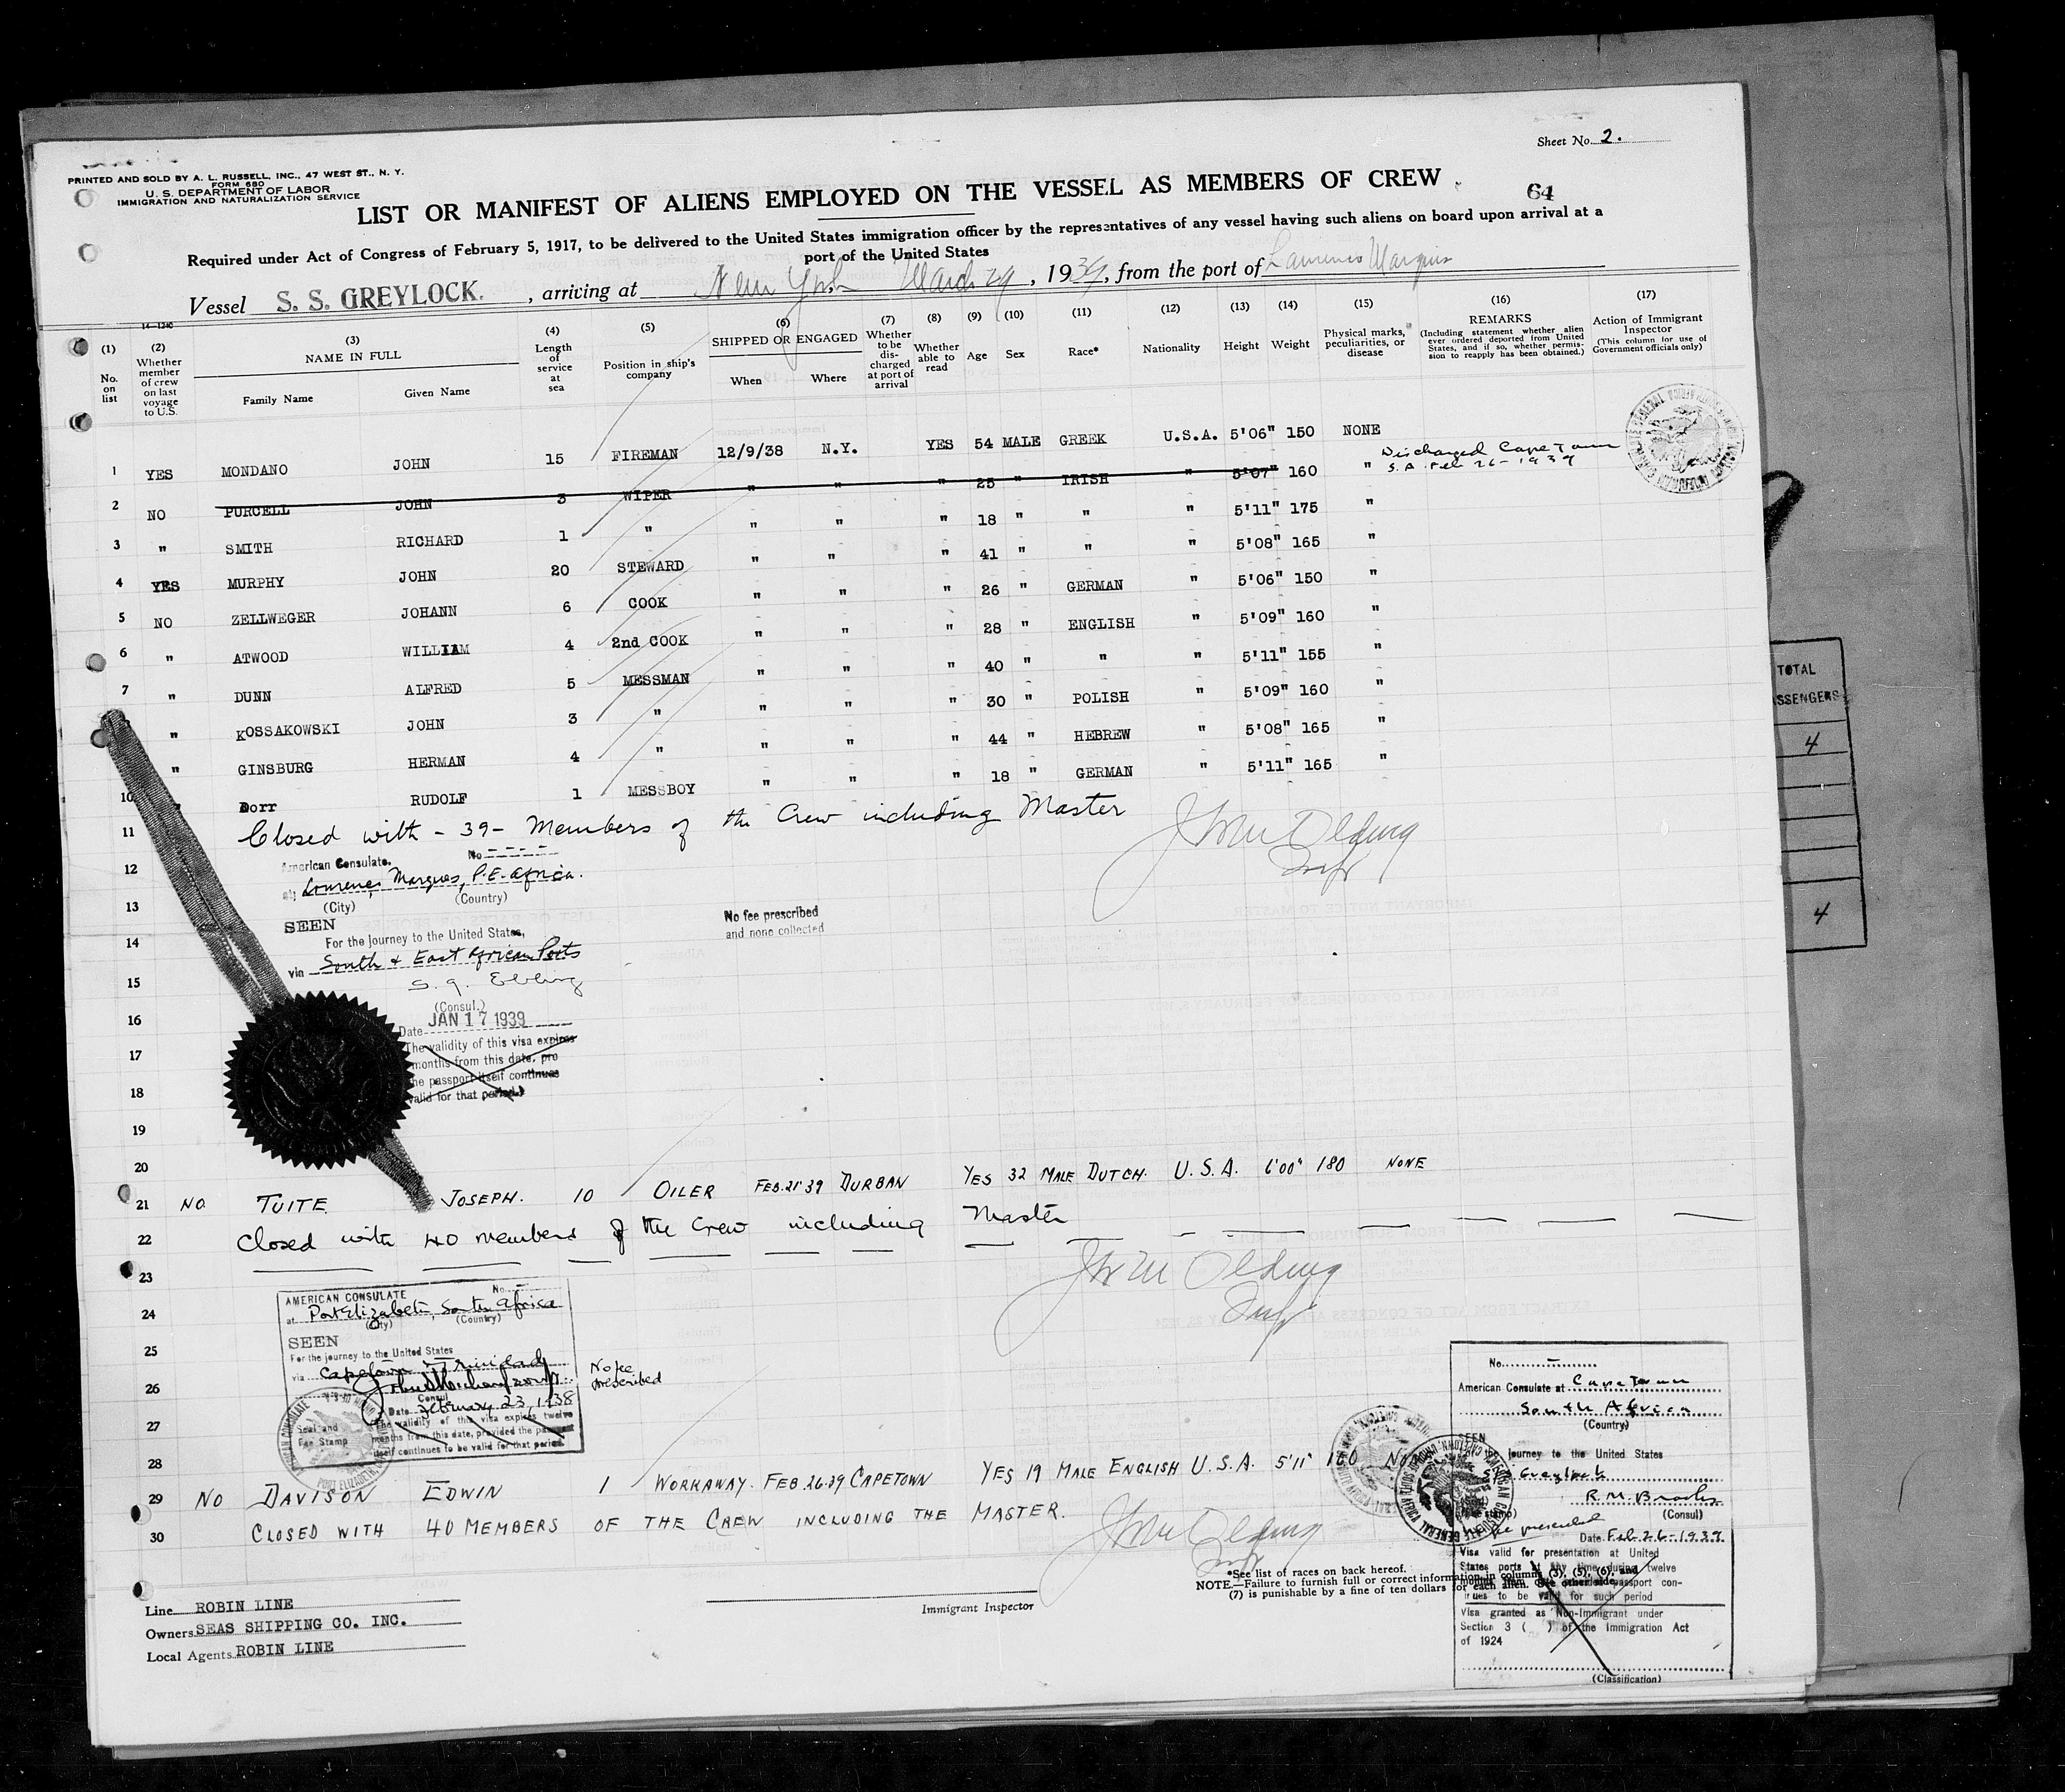 Sheet No. 2.
PRINTED AND SOLD BY A. L. RUSSELL, INC., 47 WEST ST., N. Y.
FORM 680
U. S. DEPARTMENT OF LABOR
IMMIGRATION AND NATURALIZATION SERVICE
LIST OR MANIFEST OF ALIENS EMPLOYED ON THE VESSEL AS MEMBERS OF CREW
64
Required under Act of Congress of February 5, 1917, to be delivered to the United States immigration officer by the representatives of any vessel having such aliens on board upon arrival at a
port of the United States
Vessel S. S. GREYLOCK. , arriving at New York, March 29, 1939, from the port of Laurenco Marques
14-1240
(1) No. on list
(2) Whether member of crew on last voyage to U.S.
(3) NAME IN FULL
Family Name Given Name
(4) Length of service at sea
(5) Position in ship's company
(6) SHIPPED OR ENGAGED
When Where
(7) Whether to be discharged at port of arrival
(8) Whether able to read
(9) Age
(10) Sex
(11) Race*
(12) Nationality
(13) Height
(14) Weight
(15) Physical marks, peculiarities, or disease
(16) REMARKS
(Including statement whether alien ever ordered deported from United States, and if so, whether permission to reapply has been obtained.)
(17) Action of Immigrant Inspector
(This column for use of Government officials only)
1 YES MONDANO JOHN 15 FIREMAN 12/9/38 N.Y. YES 54 MALE GREEK U.S.A. 5'06" 150 NONE
2 NO PURCELL JOHN 3 WIPER " " " 25 " IRISH " 5'07" 160 " Discharged Cape Town
S.A. Feb 26-1939
3 " SMITH RICHARD 1 " " " " 18 " " " 5'11" 175 "
4 YES MURPHY JOHN 20 STEWARD " " " 41 " " " 5'08" 165 "
5 NO ZELLWEGER JOHANN 6 COOK " " " 26 " GERMAN " 5'06" 150 "
6 " ATWOOD WILLIAM 4 2nd COOK " " " 28 " ENGLISH " 5'09" 160 "
7 " DUNN ALFRED 5 MESSMAN " " " 40 " " " 5'11" 155 "
" KOSSAKOWSKI JOHN 3 " " " " 30 " POLISH " 5'09" 160 "
" GINSBURG HERMAN 4 " " " " 44 " HEBREW " 5'08" 165 "
10 " Dorr RUDOLF 1 MESSBOY " " " 18 " GERMAN " 5'11" 165 "
11 Closed with - 39 - Members of the Crew including Master
12 American Consulate. No
at Lourenço Marques, P.E. Africa.
13 (City) (Country)
SEEN
No fee prescribed
and none collected
14 For the journey to the United States,
via South & East African Ports
15 S. G. Ebling
(Consul.)
16 Date JAN 17 1939
17 The validity of this visa expires
months from this date, pro
the passport itself continues
18 valid for that period.
19
20
21 NO TUITE JOSEPH. 10 OILER FEB. 21' 39 DURBAN YES 32 MALE DUTCH. U.S.A. 6'00" 180 NONE
22 Closed with 40 members of the Crew including Master
23
AMERICAN CONSULATE No.
24 at Port Elizabeth, South Africa
(City) (Country)
SEEN
25 For the journey to the United States
via Capetown Trinidad
26 Consul
No fee
prescribed
Date February 23, 1938
27 The validity of this visa expires twelve
months from this date, provided the passport
itself continues to be valid for that period.
Seal and
Fee Stamp
AMERICAN CONSULATE
PORT ELIZABETH
28
29 NO DAVISON EDWIN 1 WORKAWAY. FEB. 26.39 CAPETOWN YES 19 MALE ENGLISH U.S.A. 5'11" 160
30 CLOSED WITH 40 MEMBERS OF THE CREW INCLUDING THE MASTER.
No.
American Consulate at Cape Town
South Africa
(Country)
SEEN
the journey to the United States
SS Greylock
R M Brooks
(Consul)
Date Feb. 26-1939
Visa valid for presentation at United
States ports at any time during twelve
passport con-
tinues to be valid for such period
Visa granted as Non-Immigrant under
Section 3 ( ) of the Immigration Act
of 1924
(Classification)
*See list of races on back hereof.
NOTE.—Failure to furnish full or correct information in columns (3), (5), (6), and
(7) is punishable by a fine of ten dollars for each alien. See other side.
Immigrant Inspector
Line ROBIN LINE
Owners SEAS SHIPPING CO. INC.
Local Agents ROBIN LINE
TOTAL
PASSENGERS
4
4